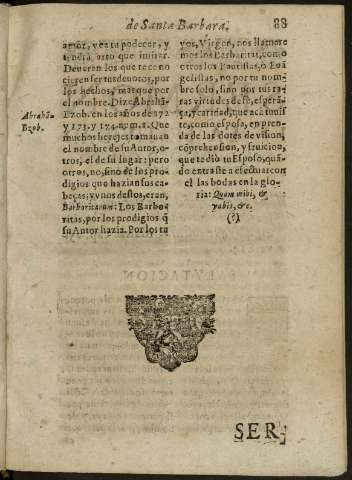 de Santa Barbara. 88
amor, vez tu podecer, y
tendrá, arto que imitar.
Deuieren los que reco no
cieren ser tus deuotos, por
los hechos, mas que por
el nombre. Dize Abrahã
Abrahã
Bzob.
Bzob. en los años de 172
y 173. y 174. num. 2. Que
muchos hereges tomauan
el nombre de su Autor, o-
tros, el de su lugar: pero
otros, no, sino de los pro-
digios que hazian sus ca-
beças; y vnos destos, eran,
Barbaritarum: Los Barbo-
ritas, por los prodigios q̃
su Autor hazia. Por los tu
yos, Virgen, nos llamare
mos los Barbaritas, como
otros los Bautistas, o Euã
gelistas, no por tu nom-
bre solo, sino por tus ra-
ras virtudes de fe, esperã-
ça, y caridad, que acá tuuis
te, como esposa, en pren-
da de las dotes de vision,
cõprehension, y fruicion,
que te dio tu Esposo, quã-
do entraste a efectuar con
el las bodas en la glo-
ria: Quam mihi, &
vobis, &c.
(?)
SER-